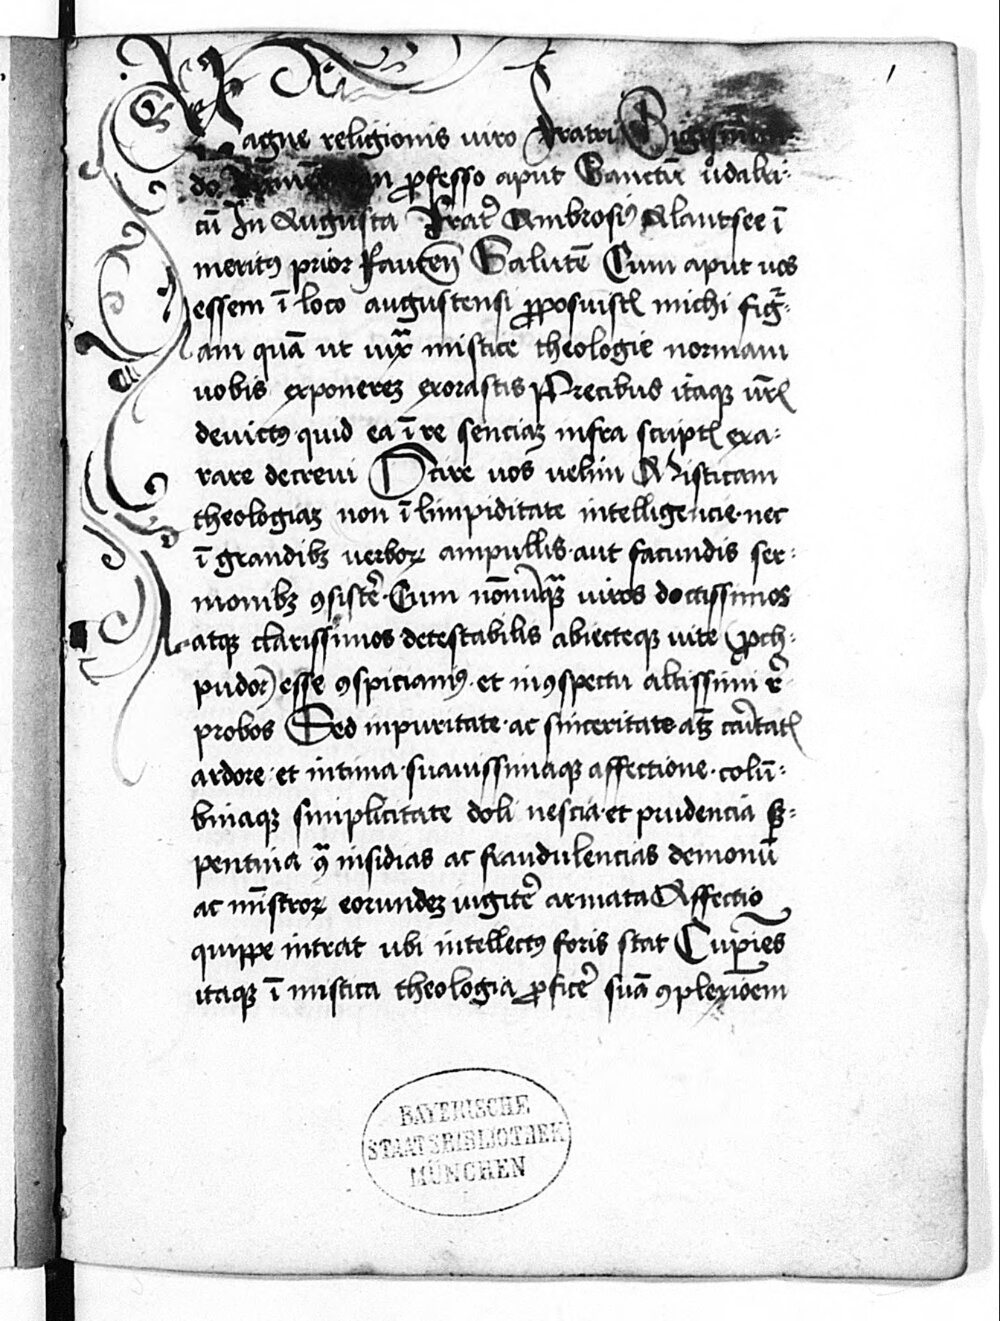 1
Magne religionis viro Fratri Sigismū
do professo aput Sanctū údalri-
cū In Augusta Frater̄ Ambrosiꝰ Alantsee ī
meritꝰ prior Faucen̄ Salutē Cum aput vos
essem ī loco augustensi ꝓposuistꝭ michi figr̄-
am quā ut vnx̄ mistice theologie normam
vobis exponereꝫ exorastis Precibus itaqꝫ vr̄ꝭ
devictꝰ quid ea ī re senciaꝫ infra scriptꝭ exa-
rare decrevi Scire vos velim Misticam
theologiaꝫ non ī limpiditate intelligencie nec
ī grandibꝫ verboꝝ ampullis aut facundis ser-
monibꝫ ꝯsister̄ Cum nōnūqꝫ viros doctissimos
atqꝫ clarissimos detestabilis abiecteqꝫ vite (proch
pudor) esse ꝯspiciamꝰ et inꝯspectu altissimi re-
probos Sed inpuritate ac sinceritate atqꝫ caritatꝭ
ardore et intima suavissimaqꝫ affectione colū-
binaqꝫ simplicitate doli nescia et prudencia ser-
pentina ꝯ̄ insidias ac fraudulencias demonū
ac mīstroꝝ eorundeꝫ vigiter̄ armata Affectio
quippe intrat ubi intellectꝰ foris stat Cupiēs
itaqꝫ ī mistica theologia ꝓficer̄ suā ꝯplexiōem
BAYERISCHE
STAATSBIBLIOTHEK
MÜNCHEN